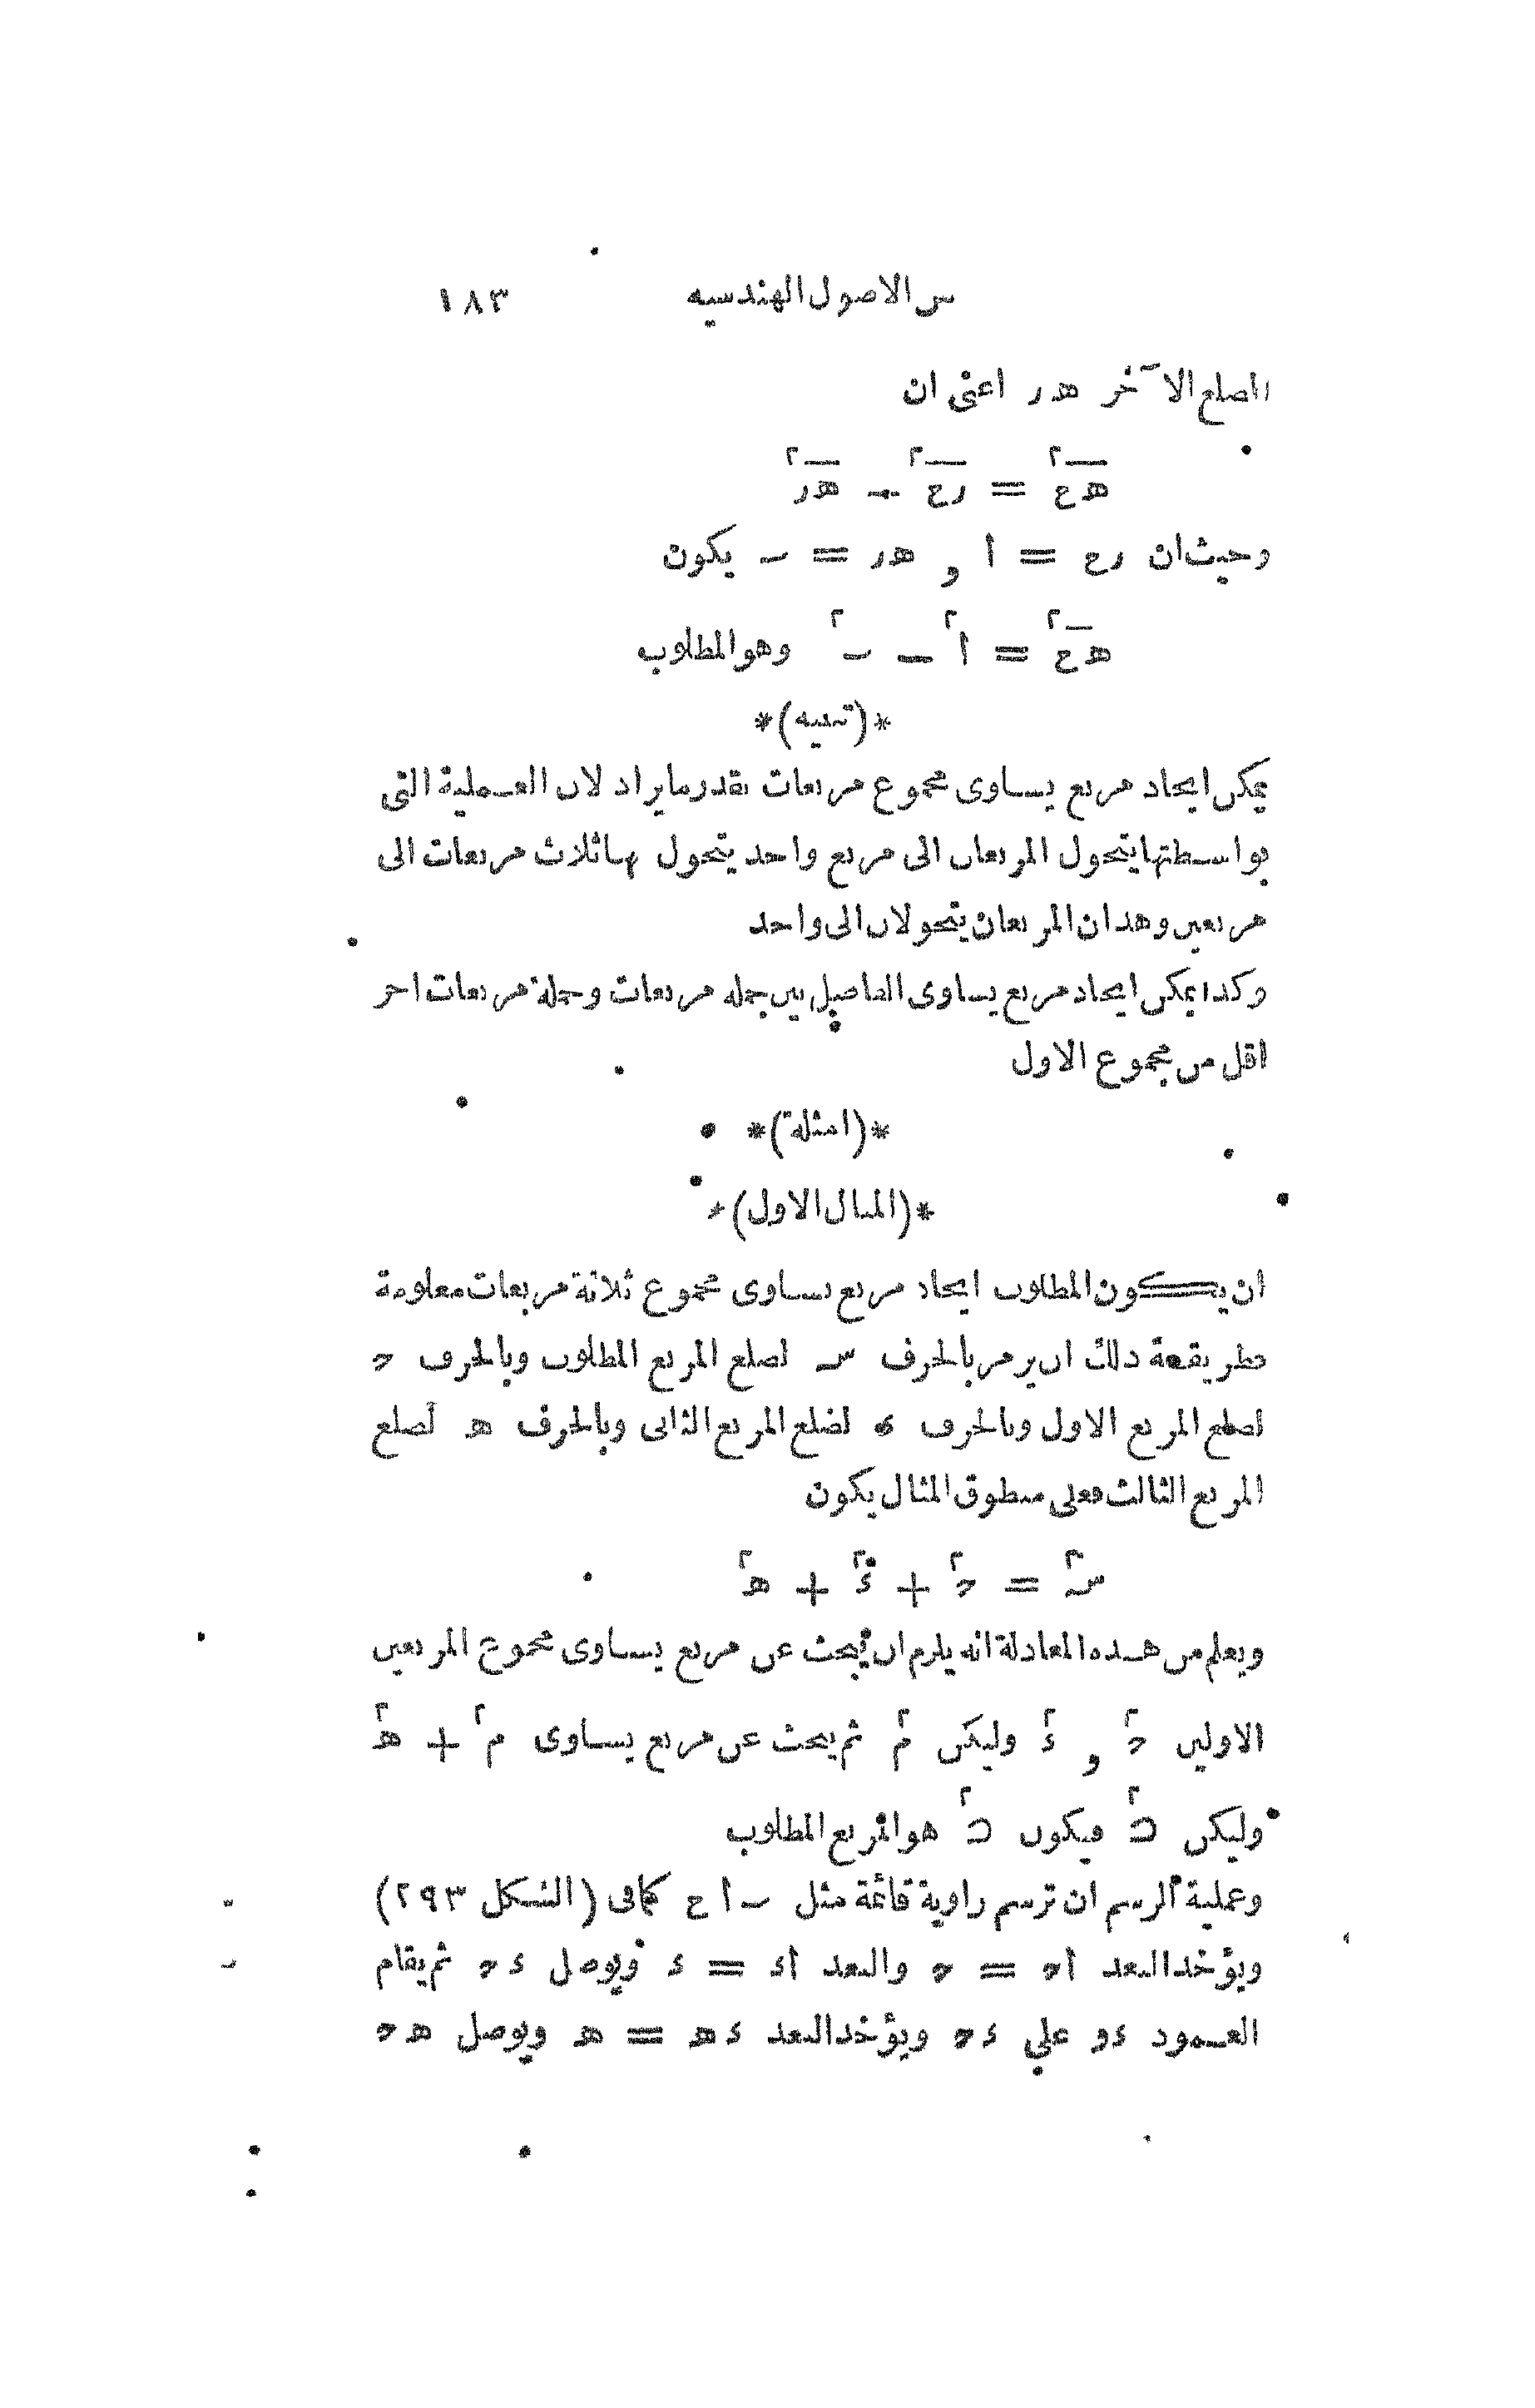 من الاصول الهندسيه ١٨٣
الضلع الآخر هر اعنى ان
هع٢ = رع٢ - هر٢
وحيث ان رع = ا , هر = ب يكون
هع٢ = ا٢ - ب٢ وهو المطلوب
*(تنبيه)*
يمكن ايجاد مربع يساوى مجموع مربعات بقدر ما يراد لان العملية التى
بواسطتها يتحول المربعان الى مربع واحد يتحول بها ثلاث مربعات الى
مربعين وهذان المربعان يتحولان الى واحد
وكذا يمكن ايجاد مربع يساوى الفاضل بين جملة مربعات وجملة مربعات اخر
اقل من مجموع الاول
*(امثلة)*
*(المثال الاول)*
ان يكون المطلوب ايجاد مربع يساوى مجموع ثلاثة مربعات معلومة
فطريقة ذلك ان يرمز بالحرف س لضلع المربع المطلوب وبالحرف ح
لضلع المربع الاول وبالحرف ء لضلع المربع الثانى وبالحرف ه لضلع
المربع الثالث فعلى منطوق المثال يكون
س٢ = ح٢ + ء٢ + ه٢
ويعلم من هذه المعادلة انه يلزم ان يبحث عن مربع يساوى مجموع المربعين
الاولين ح٢ , ء٢ وليكن م٢ ثم يبحث عن مربع يساوى م٢ + ه٢
وليكن ن٢ فيكون ن٢ هو المربع المطلوب
وعملية الرسم ان ترسم زاوية قائمة مثل ب ا ع كما فى (الشكل ٢٩٣)
ويؤخذ البعد اح = ح والبعد اء = ء ويوصل ء ح ثم يقام
العمود ءو على ءح ويؤخذ البعد ءه = ه ويوصل ه ح